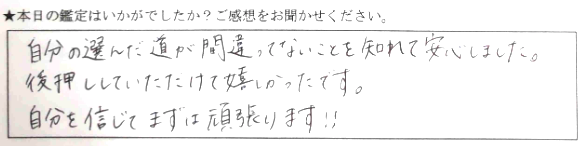 ★本日の鑑定はいかがでしたか？ご感想をお聞かせください。
自分の選んだ道が間違ってないことを知れて安心しました。
後押ししていただけて嬉しかったです。
自分を信じてまずは頑張ります!!